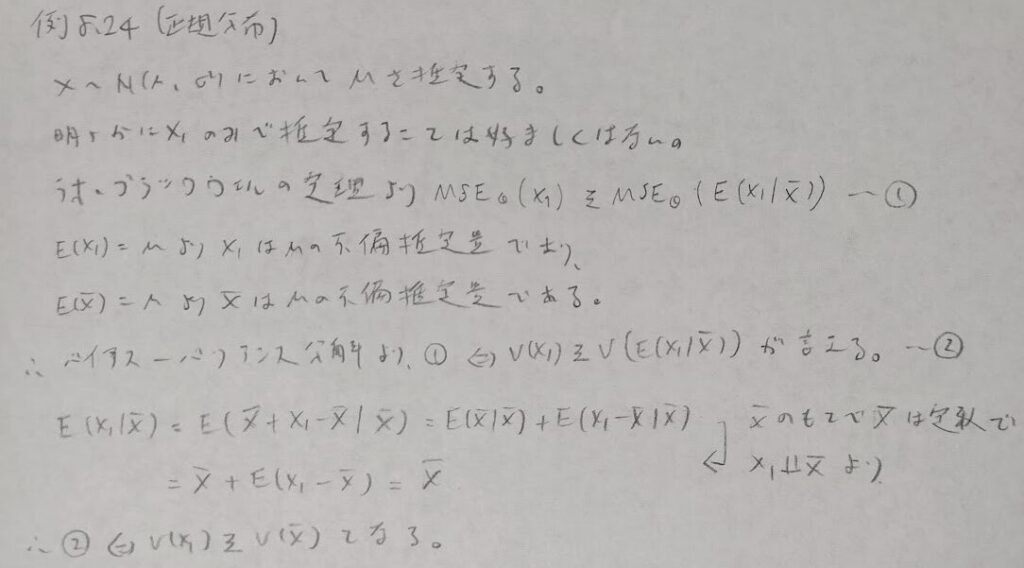 例5.24 (正規分布)
X ~ N(μ, σ²) において μ を推定する。
明らかに X₁ のみで推定することは好ましくはない。
ラオ・ブラックウェルの定理より MSE_θ(X₁) ≧ MSE_θ(E(X₁|X̄)) ―①
E(X₁) = μ より X₁ は μ の不偏推定量であり、
E(X̄) = μ より X̄ は μ の不偏推定量である。
∴ バイアス－バリアンス分解より、① ⇔ V(X₁) ≧ V(E(X₁|X̄)) が言える。―②
E(X₁|X̄) = E(X̄ + X₁ - X̄ | X̄) = E(X̄|X̄) + E(X₁ - X̄|X̄)
X̄ のもとで X̄ は定数で
X₁ ⫫ X̄ より
= X̄ + E(X₁ - X̄) = X̄
∴ ② ⇔ V(X₁) ≧ V(X̄) となる。